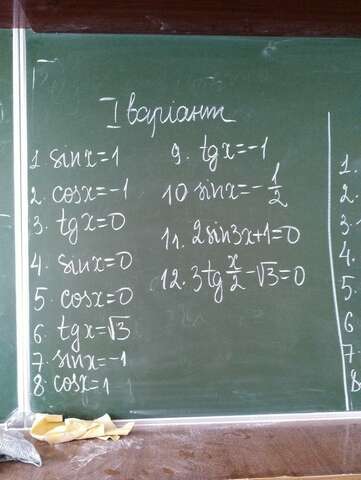 I варіант
1. sinx=1
2. cosx=-1
3. tgx=0
4. sinx=0
5. cosx=0
6. tgx=√3
7. sinx=-1
8. cosx=1
9. tgx=-1
10 sinx=-1/2
11. 2sin3x+1=0
12. 3tg x/2-√3=0
1.
2.
3.
4.
5.
6
7
8